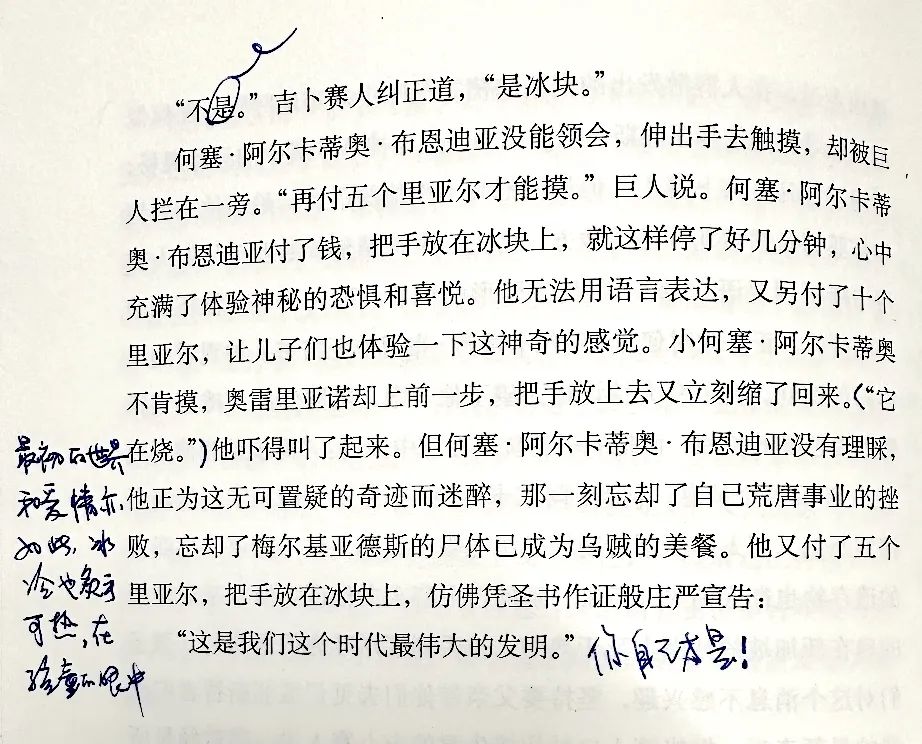 “不是。”吉卜赛人纠正道，“是冰块。”
何塞·阿尔卡蒂奥·布恩迪亚没能领会，伸出手去触摸，却被巨
人拦在一旁。“再付五个里亚尔才能摸。”巨人说。何塞·阿尔卡蒂
奥·布恩迪亚付了钱，把手放在冰块上，就这样停了好几分钟，心中
充满了体验神秘的恐惧和喜悦。他无法用语言表达，又另付了十个
里亚尔，让儿子们也体验一下这神奇的感觉。小何塞·阿尔卡蒂奥
不肯摸，奥雷里亚诺却上前一步，把手放上去又立刻缩了回来。（“它
在烧。”）他吓得叫了起来。但何塞·阿尔卡蒂奥·布恩迪亚没有理睬，
他正为这无可置疑的奇迹而迷醉，那一刻忘却了自己荒唐事业的挫
败，忘却了梅尔基亚德斯的尸体已成为乌贼的美餐。他又付了五个
里亚尔，把手放在冰块上，仿佛凭圣书作证般庄严宣告：
“这是我们这个时代最伟大的发明。”
你自己才是！
最初的世界
和爱情亦
如此，冰
冷也炙手
可热，在
孩童的眼中